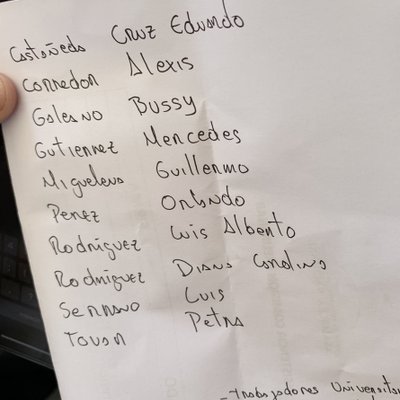 Castañeda Cruz Eduardo
Corredor Alexis
Galeano Bussy
Gutierrez Mercedes
Miguelena Guillermo
Perez Orlando
Rodriguez Luis Alberto
Rodriguez Diana Carolina
Serrano Luis
Tovar Petra
- Trabajadores